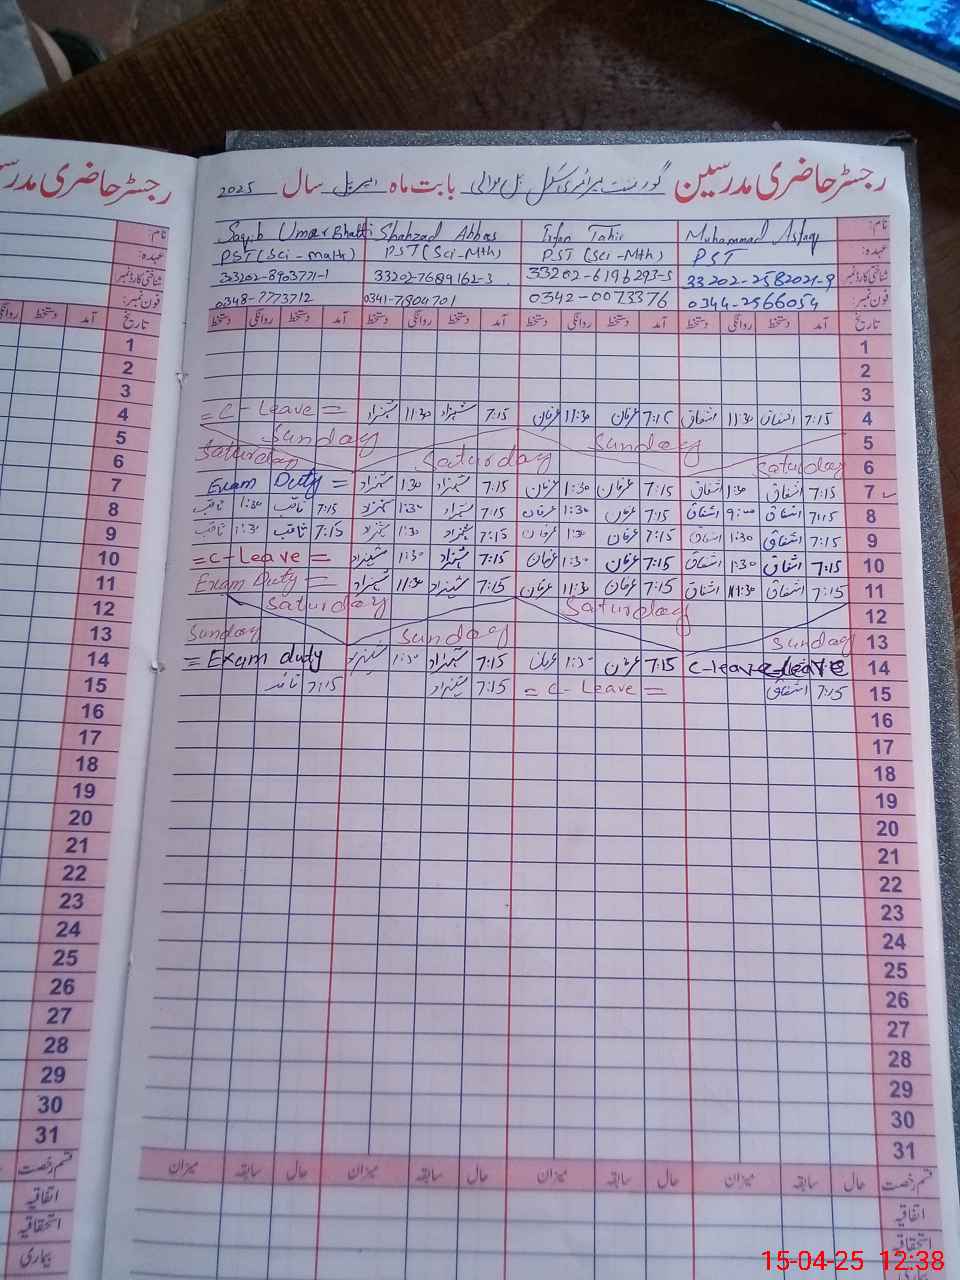 رجسٹر حاضری مدرسین گورنمنٹ پرائمری سکول بابت ماہ اپریل سال 2025
نام:
Muhammad Asfaq
Irfan Tahir
Shahzad Abbas
Saqib Umar Bhatti
عہدہ:
PST
PST (Sci-Mth)
PST (Sci-Mth)
PST (Sci-math)
شناختی کارڈ نمبر
33202-2582021-9
33202-6196293-5
33202-7689162-3
33202-8903771-1
فون نمبر:
0344-2566054
0342-0073376
0341-7904701
0348-7773712
تاریخ آمد دستخط روانگی دستخط آمد دستخط روانگی دستخط آمد دستخط روانگی دستخط آمد دستخط روانگی دستخط
1
2
3
4 7:15 اشفاق 11:30 اشفاق 7:15 عرفان 11:30 عرفان 7:15 شہزاد 11:30 شہزاد = C-Leave =
5 Sunday Sunday
6 Saturday Saturday Saturday
7 7:15 اشفاق 1:30 اشفاق 7:15 عرفان 1:30 عرفان 7:15 شہزاد 1:30 شہزاد Exam Duty =
8 7:15 اشفاق 9:00 اشفاق 7:15 عرفان 1:30 عرفان 7:15 شہزاد 1:30 شہزاد 7:15 ثاقب 1:30 ثاقب
9 7:15 اشفاق 1:30 اشفاق 7:15 عرفان 1:30 عرفان 7:15 شہزاد 1:30 شہزاد 7:15 ثاقب 1:30 ثاقب
10 7:15 اشفاق 1:30 اشفاق 7:15 عرفان 1:30 عرفان 7:15 شہزاد 1:30 شہزاد = C-Leave =
11 7:15 اشفاق 11:30 اشفاق 7:15 عرفان 11:30 عرفان 7:15 شہزاد 11:30 شہزاد Exam Duty =
12 Saturday Saturday
13 Sunday Sunday Sunday
14 C-leave C-leave 7:15 عرفان 1:30 عرفان 7:15 شہزاد 1:30 شہزاد = Exam duty
15 7:15 اشفاق = C-Leave = 7:15 شہزاد 7:15 ثاقب
16
17
18
19
20
21
22
23
24
25
26
27
28
29
30
31
قسم رخصت حال سابقہ میزان حال سابقہ میزان حال سابقہ میزان حال سابقہ میزان
اتفاقیہ
استحقاقیہ
رجسٹر حاضری
نام:
عہدہ:
شناختی کارڈ نمبر
فون نمبر:
تاریخ آمد دستخط روانگی
1
2
3
4
5
6
7
8
9
10
11
12
13
14
15
16
17
18
19
20
21
22
23
24
25
26
27
28
29
30
31
قسم رخصت
اتفاقیہ
استحقاقیہ
بیماری
15-04-25 12:38